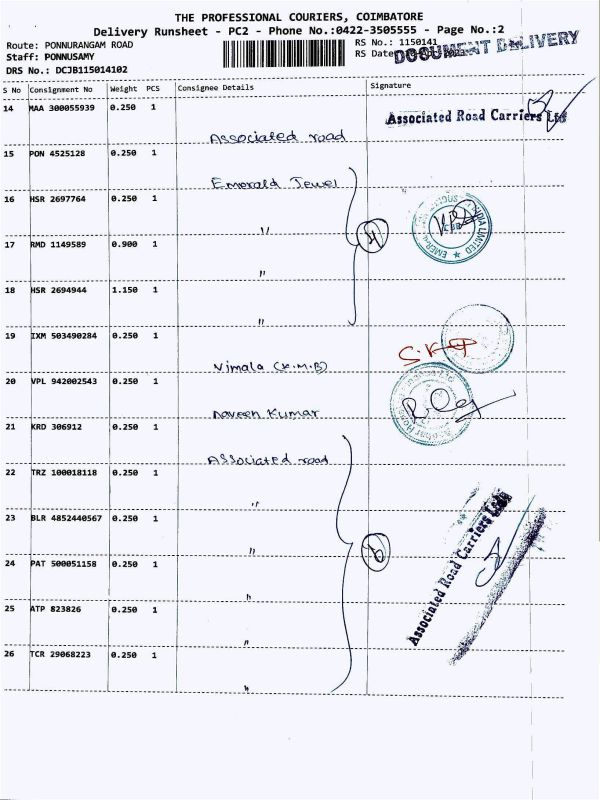 THE PROFESSIONAL COURIERS, COIMBATORE
Delivery Runsheet - PC2 - Phone No.:0422-3505555 - Page No.:2
Route: PONNURANGAM ROAD
Staff: PONNUSAMY
DRS No.: DCJB115014102
RS No.: 1150141
RS Date
DOCUMENT DELIVERY
S No Consignment No Weight PCS Consignee Details Signature
14 MAA 300055939 0.250 1
Associated road
Associated Road Carriers Ltd
15 PON 4525128 0.250 1
Emerald Jewel
16 HSR 2697764 0.250 1
"
EMERALD INDIA LIMITED
17 RMD 1149589 0.900 1
"
4
18 HSR 2694944 1.150 1
"
19 IXM 503490284 0.250 1
Vimala (K.M.B)
20 VPL 942002543 0.250 1
Naveen Kumar
21 KRD 306912 0.250 1
Associated road
22 TRZ 100018118 0.250 1
"
23 BLR 4852440567 0.250 1
"
6
Associated Road Carriers Ltd
24 PAT 500051158 0.250 1
"
25 ATP 823826 0.250 1
"
26 TCR 29068223 0.250 1
"